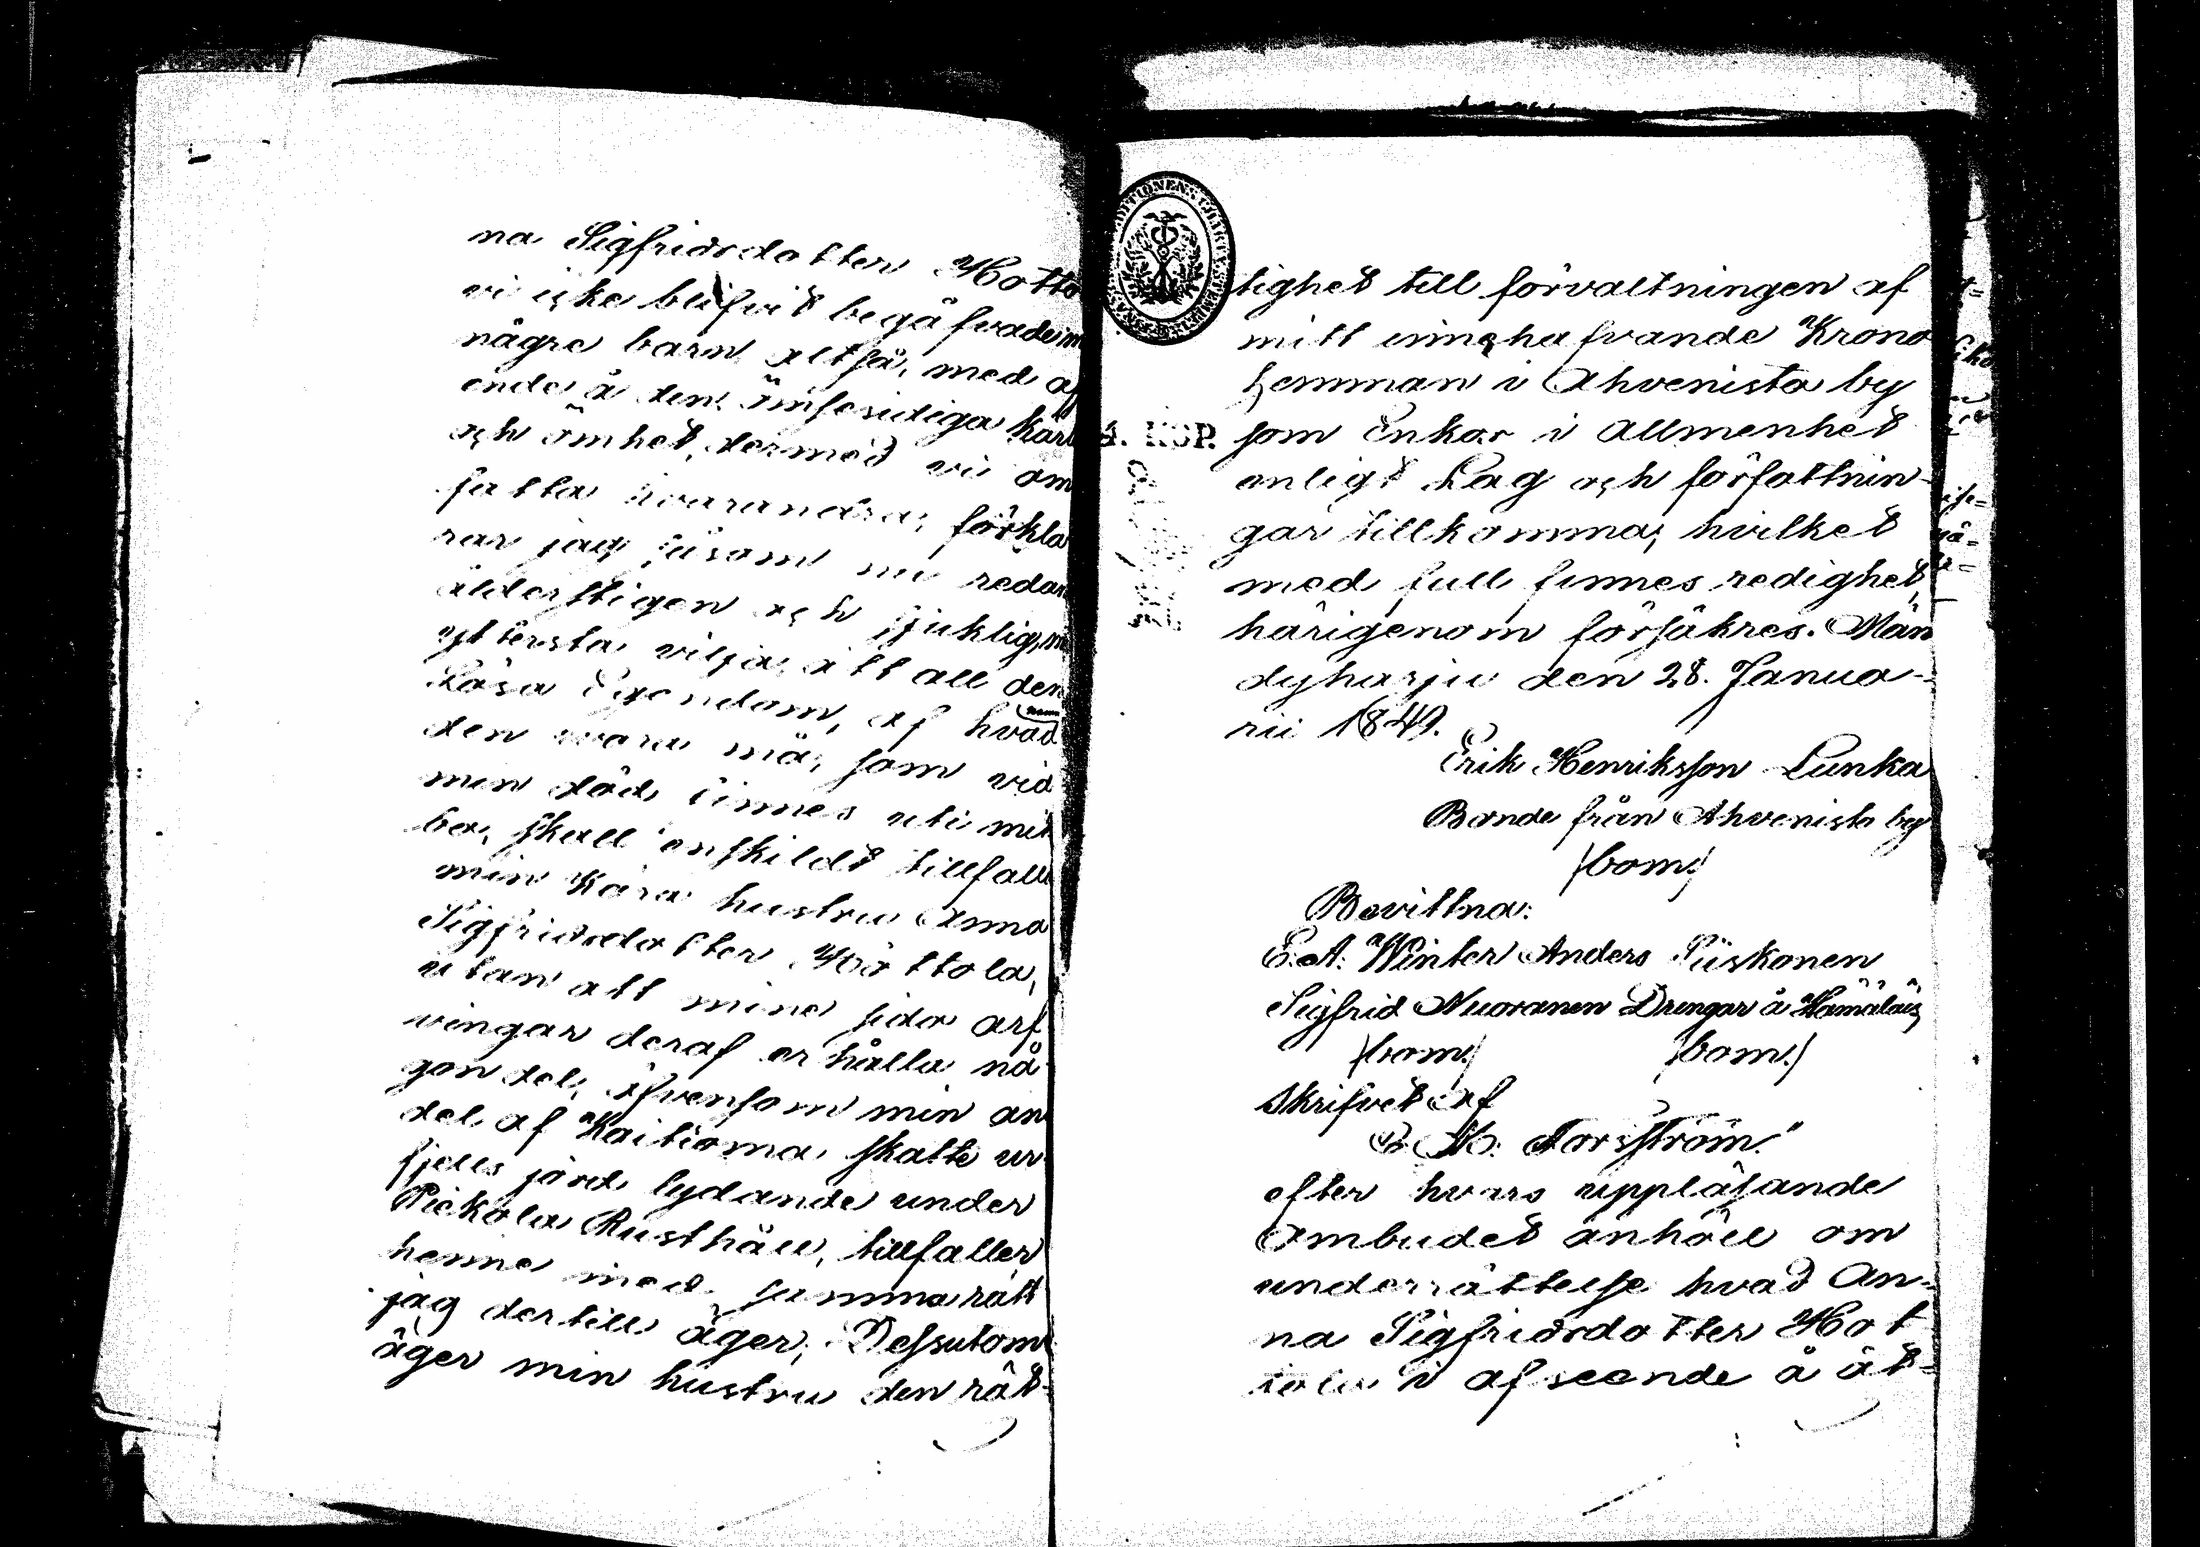 na Sigfridsdotter Hotto
vi icke blifvit begåfvade m
några barn altså, med af
ende å den ömsesidiga kärl
och ömhet, dermed vi om
fatta hvarandra, förkla
rar jag, såsom nu redan
ålderstigen och sjuklig, m
yttersta vilja, att all den
Lösa Egendom, af hvad namn
den vara må, som vid
min död finnes uti mit
bo, skall enskildt tillfalla
min Kära hustru Anna
Sigfridsdotter Hottola,
utan att mina sido arf
vingar deraf erhålla nå
gon del, äfvensom min an
del af Kaitioma skatte ur
fjells jord lydande under
Piekola Rusthåll, tillfaller
henne med samma rätt
jag dertill äger, Dessutom
äger min hustru den rät-
4. KOP.
tighet till förvaltningen af
mitt innehafvande Krono
hemman i Ahvenisto by
som Enkor i Allmenhet
enligt Lag och författnin-
gar tillkomma, hvilket
med full sinnes redighet,
härigenom försäkres. Män
dyharju den 28. Janua-
rii 1849.
Erik Henriksson Lunka
Bonde från Ahvenisto by
/bom:/
Bevittna:
E. A. Winter Anders Piiskonen
Sigfrid Nuoranen Drengar å Hämäläis
/bom:/ /bom:/
Skrifvet af
M: Forsström."
efter hvars uppläsande
Ombudet anhöll om
underrättelse hvad An-
na Sigfridsdotter Hot
tola i afseende å åt-